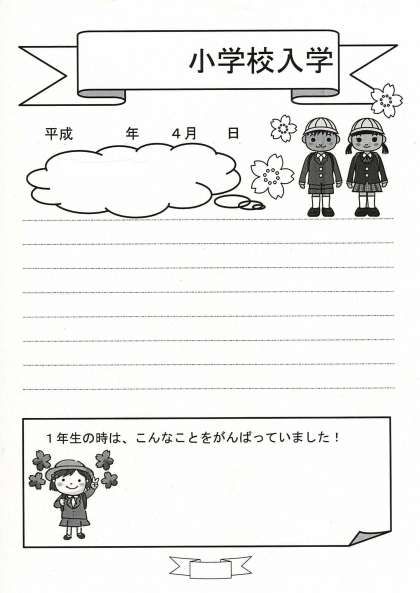 小学校入学
平成　　　年　　４月　　日
１年生の時は、こんなことをがんばっていました！